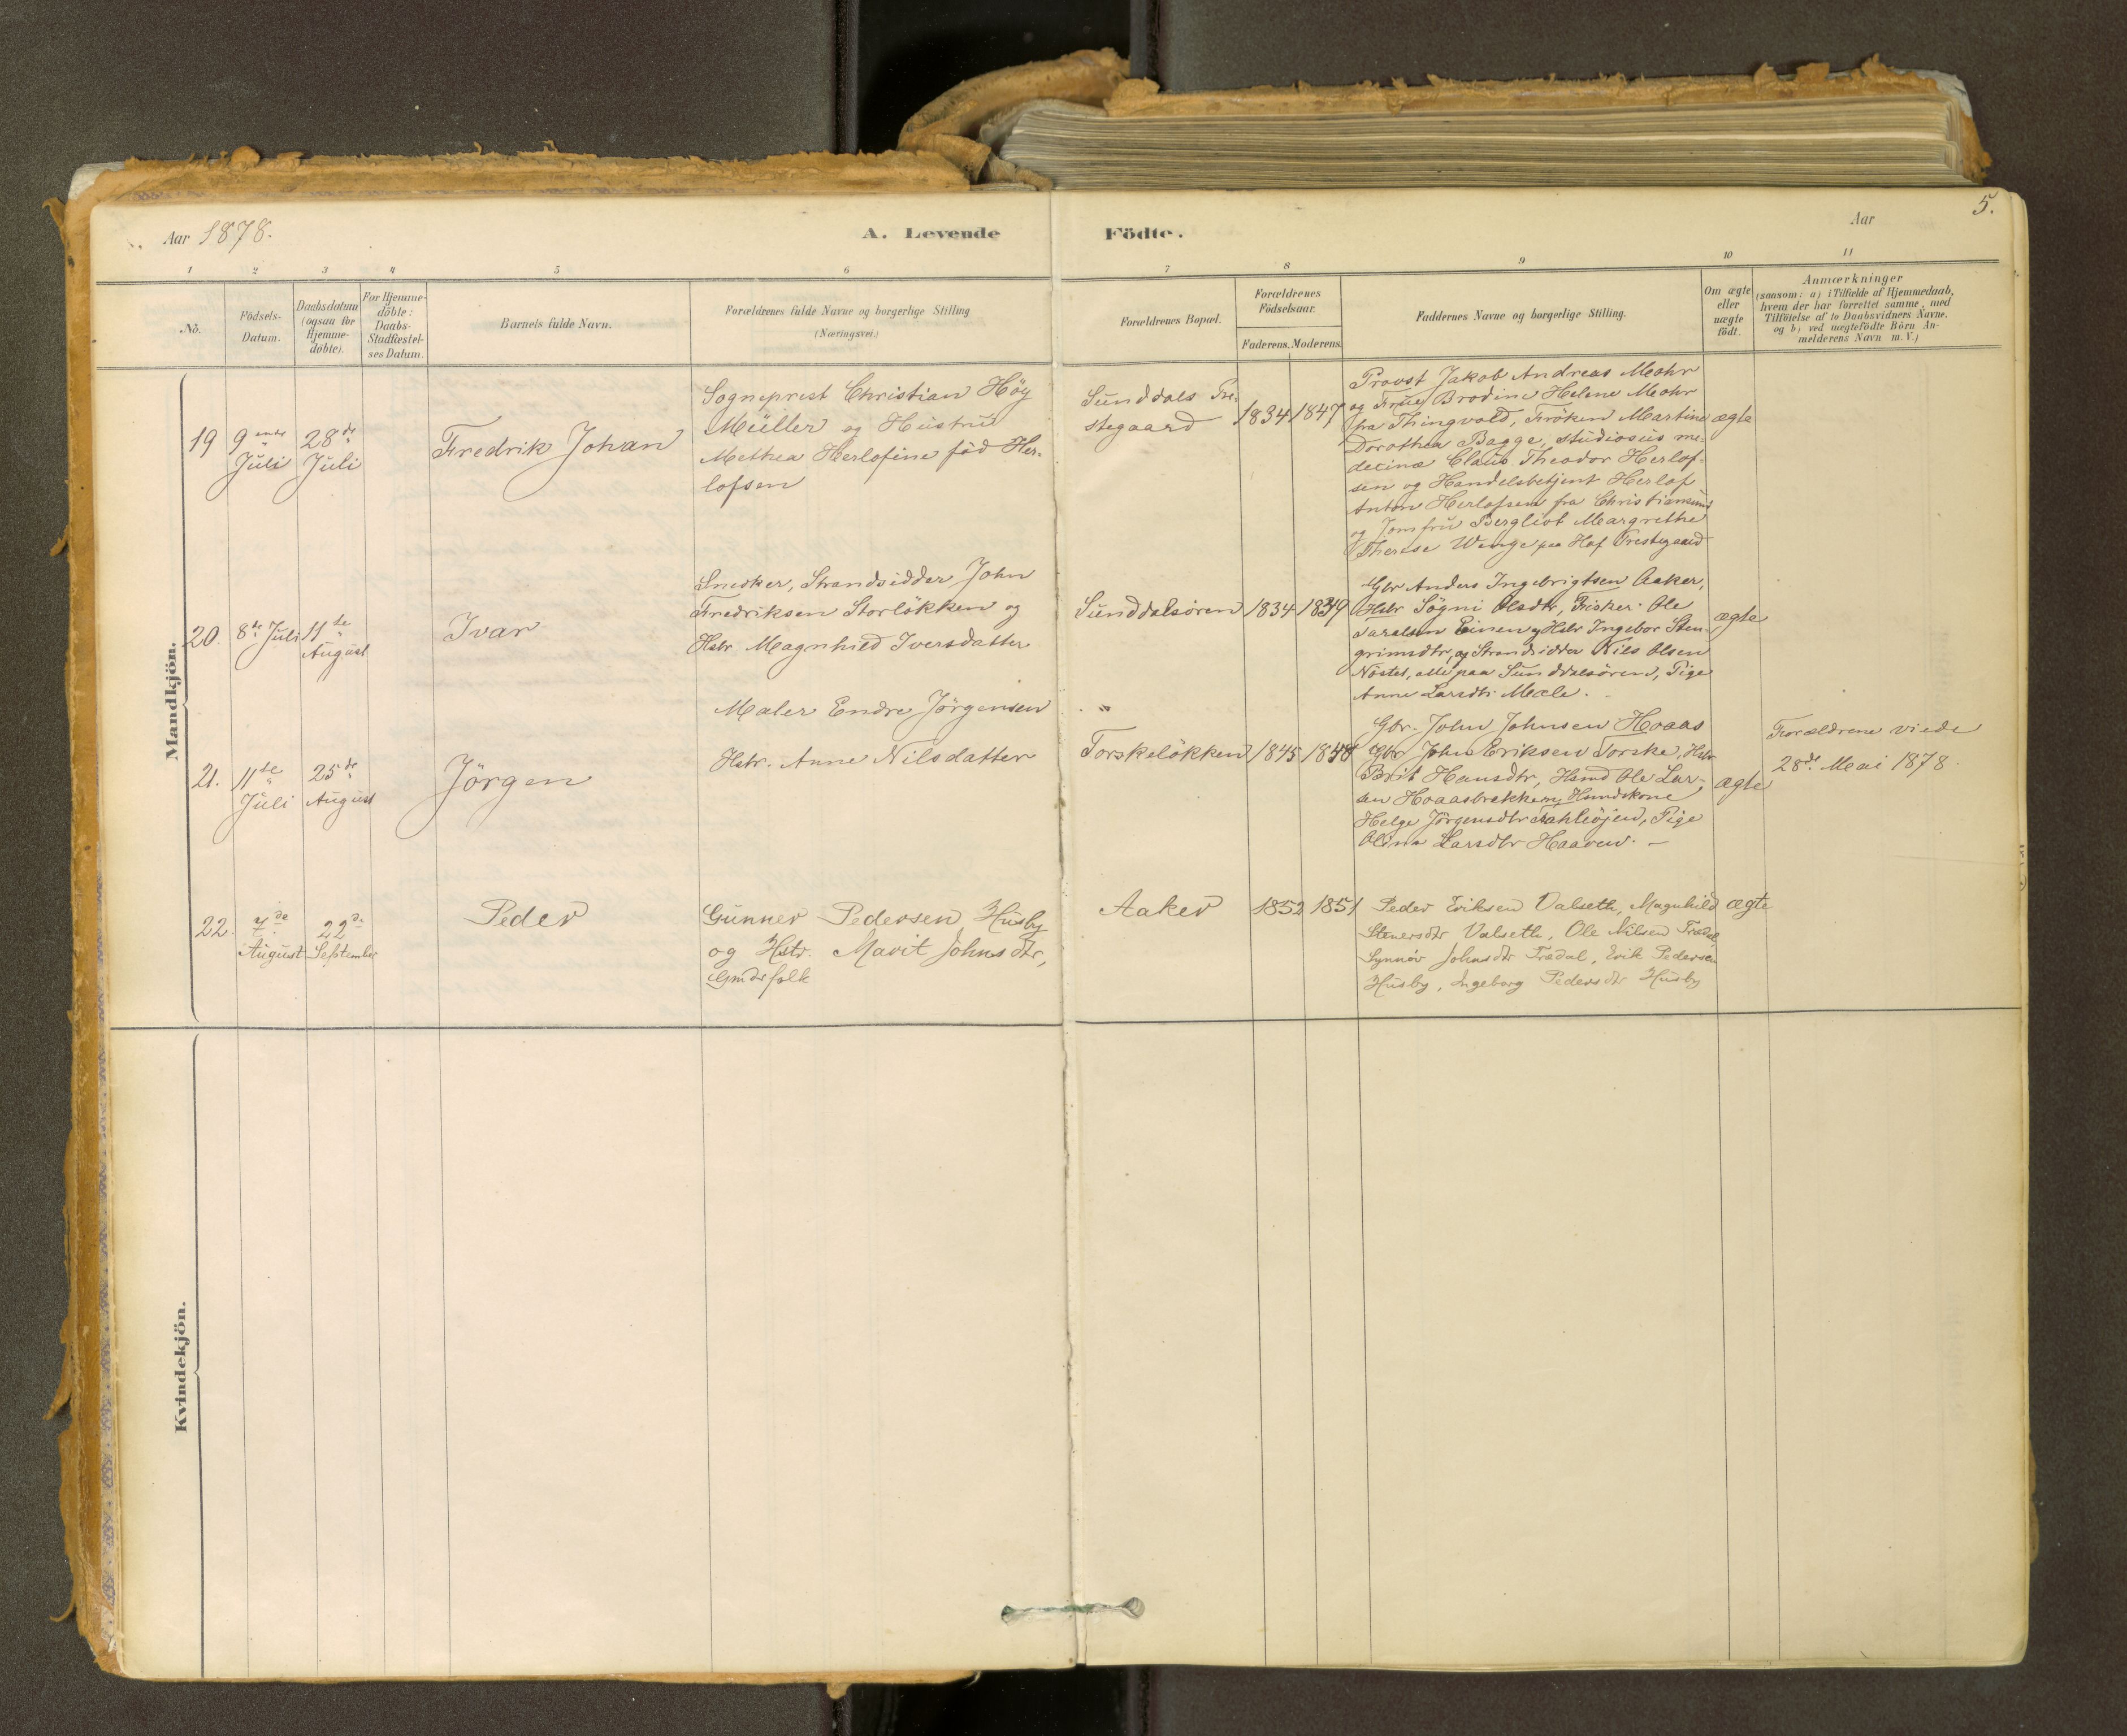 Aar 1878.
A. Levende
Födte.
Aar
5.
1
2
3
4
5
6
7
8
9
10
11
No.
Födsels-
Datum.
Daabsdatum
(ogsaa for
Hjemme-
döbte).
For Hjemme-
döbte:
Daabs-
Stadfæstel-
ses Datum.
Barnets fulde Navn.
Forældrenes fulde Navne og borgerlige Stilling
(Næringsvei.)
Forældrenes Bopæl.
Forældrenes
Födselsaar.
Faderens. Moderens.
Faddernes Navne og borgerlige Stilling.
Om ægte
eller
uægte
födt.
Anmærkninger
(saasom: a) i Tilfælde af Hjemmedaab,
hvem der har forrettet samme, med
Tilföielse af to Daabsvidners Navne.
og b) ved uægtefödte Börn An-
melderens Navn m. V.)
Mandkjön.
19
9ende
Juli
28de
Juli
Fredrik Johan
Sogneprest Christian Höy
Müller og Hustru
Methea Herlofine föd Her-
lofsen
Sunddals Pre-
stegaard
1834
1847
Provst Jakob Andreas Mohr
og Frue Brodine Helene Mohr
fra Thingvold, Fröken Martine
Dorothea Bagge, studiosus me-
decinæ Claus Theodor Herlof-
sen og Handelsbetjent Herlof
Anton Herlofsen fra Christiansund
og Jomfru Bergliot Margrethe
Therese Winge paa Hof Prestegaard
ægte
20.
8de Juli
11te
August
Ivar
Snedker, Strandsidder John
Fredriksen Storlökken og
Hstr. Magnhild Iversdatter
Sunddalsören
1834
1839
Gbr Anders Ingebrigtsen Aaker,
Hstr Sögni Olsdtr, Fisker Ole
Taralsen og Hstr Ingebor Sten-
grimsdtr, og Strandsidder Nils Olsen
Nöstet, alle paa Sunddalsören, Pige
Anne Larsdtr Mæle.
ægte
21.
11te
Juli
25de
August
Jörgen
Maler Endre Jörgensen
Hstr. Anne Nilsdatter
Torskelökken
1845
1848
Gbr. John Johnsen Hoaas
Gbr John Eriksen Torske, Hstr
Brit Hansdtr, Hsmd Ole Lar-
sen Hoaasbrekken, Husmdskone
Helge Jörgensdtr, Pige
Olina Larsdtr Haaven. —
ægte
Forældrene viede
28de Mai 1878.
22.
7de
August
22de
September
Peder
Gunner Pedersen Husby
og Hstr. Marit Johnsdtr,
Gmdsfolk
Aaker
1852
1851
Peder Eriksen Valseth, Magnhild
Stenersdtr Valseth, Ole Nilsen Fradal,
Synnöv Johnsdtr Fradal, Erik Pedersen
Husby, Ingeborg Pedersdtr Husby
ægte
Kvindekjön.